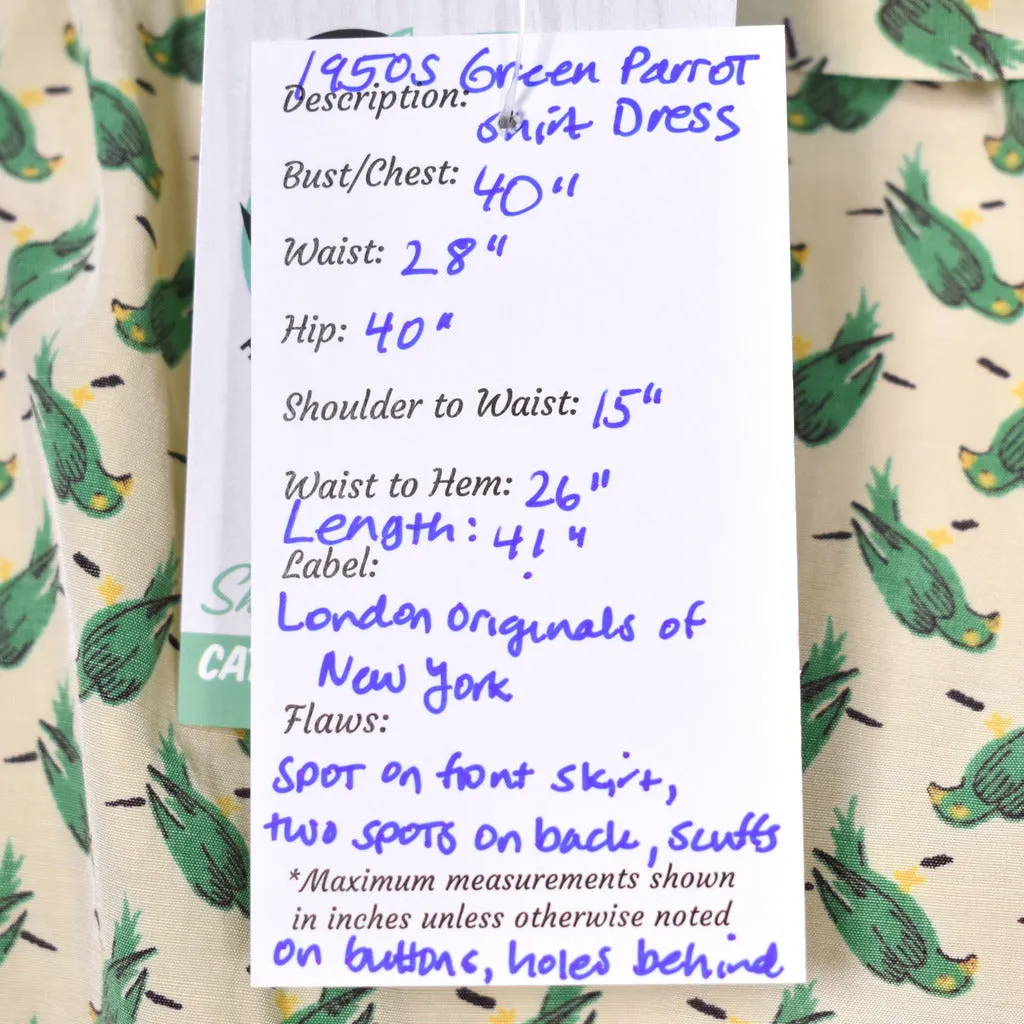 1950s Green Parrot
Description:
Shirt Dress
Bust/Chest: 40"
Waist: 28"
Hip: 40"
Shoulder to Waist: 15"
Waist to Hem: 26"
Length: 41"
Label:
London Originals of
New York
Flaws:
Spot on front skirt,
two spots on back, scuffs
*Maximum measurements shown
in inches unless otherwise noted
on buttons, holes behind
CAT